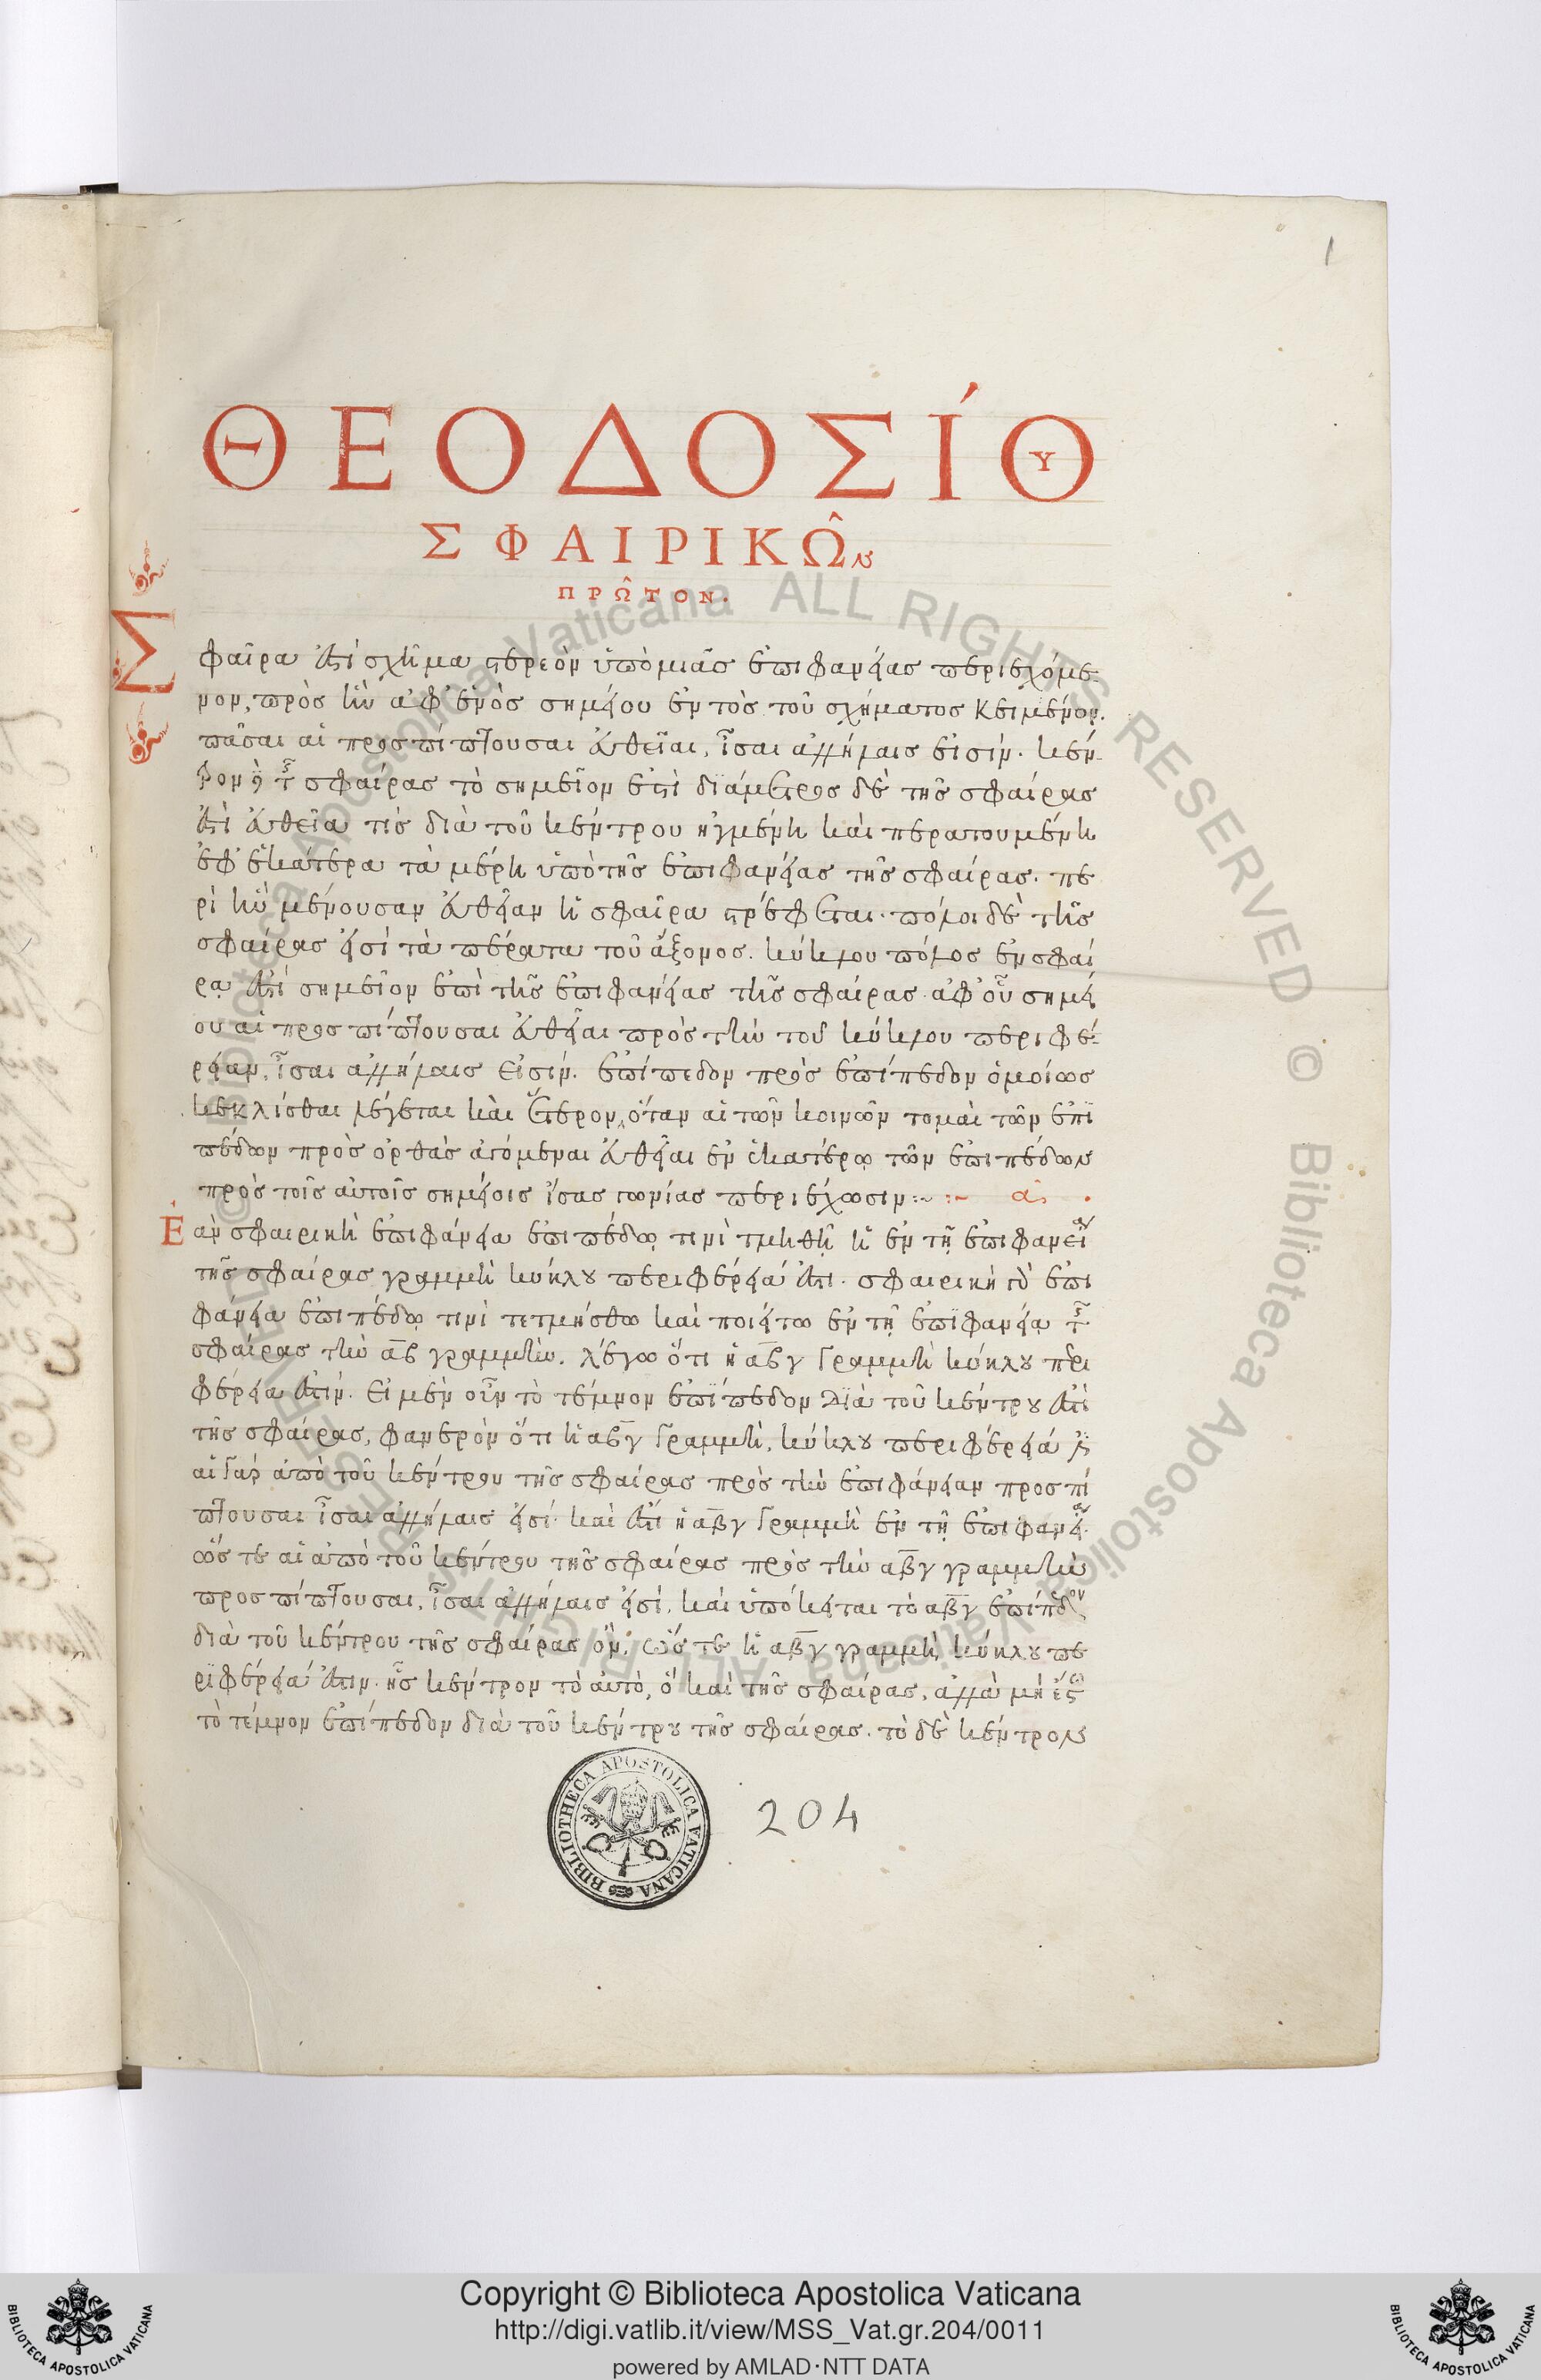 1
ΘΕΟΔΟΣΊΟΥ
ΣΦΑΙΡΙΚΩ͂ν
ΠΡΩ͂ΤΟΝ.
Σφαῖρα ἐστὶ σχῆμα στερεὸν ὑπὸ μιᾶς ἐπιφανείας περιεχόμε-
νον, πρὸς ἣν ἀφ' ἑνὸς σημείου ἐντὸς τοῦ σχήματος κειμένου.
πᾶσαι αἱ προσπίπτουσαι εὐθεῖαι, ἴσαι ἀλλήλαις εἰσίν. κέν-
τρον δὲ τῆς σφαίρας τὸ σημεῖον ἐστὶ διάμετρος δὲ τῆς σφαίρας
ἐστὶ εὐθεῖα τίς διὰ τοῦ κέντρου ἠγμένη καὶ περατουμένη
ἐφ' ἑκάτερα τὰ μέρη ὑπὸ τῆς ἐπιφανείας τῆς σφαίρας. πε
ρὶ ἣν μένουσαν εὐθεῖαν ἡ σφαῖρα στρέφεται. πόλοι δὲ τῆς
σφαίρας εἰσὶ τὰ πέρατα τοῦ ἄξονος. κύκλου πόλος ἐν σφαί
ρᾳ ἐστὶ σημεῖον ἐπὶ τῆς ἐπιφανείας τῆς σφαίρας. ἀφ' οὗ σημεί
ου αἱ προσπίπτουσαι εὐθεῖαι πρὸς τὴν τοῦ κύκλου περιφέ-
ρειαν, ἴσαι ἀλλήλαις εἰσίν. ἐπίπεδον πρὸς ἐπίπεδον ὁμοίως
κεκλίσθαι λέγεται καὶ ἕτερον, ὅταν αἱ τῶν κοινῶν τομαὶ τῶν ἐπι
πέδων πρὸς ὀρθὰς ἀγόμεναι εὐθεῖαι ἐν ἑκατέρῳ τῶν ἐπιπέδων
πρὸς τοῖς αὐτοῖς σημείοις ἴσας γωνίας περιέχωσιν :~ :~ α.
Ἐὰν σφαιρικὴ ἐπιφάνεια ἐπιπέδῳ τινὶ τμηθῇ ἡ ἐν τῇ ἐπιφανείᾳ
τῆς σφαίρας γραμμὴ κύκλου περιφέρειά ἐστι. σφαιρικὴ γὰρ ἐπι
φάνεια ἐπιπέδῳ τινὶ τετμήσθω καὶ ποιείτω ἐν τῇ ἐπιφανείᾳ τῆς
σφαίρας τὴν αβ γραμμήν. λέγω ὅτι ἡ αβγ γραμμὴ κύκλου περι
φέρεια ἐστίν. εἰ μὲν οὖν τὸ τέμνον ἐπίπεδον διὰ τοῦ κέντρου ἐστὶ
τῆς σφαίρας, φανερὸν ὅτι ἡ αβγ γραμμὴ, κύκλου περιφέρειά ἐστι
αἱ γὰρ ἀπὸ τοῦ κέντρου τῆς σφαίρας πρὸς τὴν ἐπιφάνειαν προσπί
πτουσαι ἴσαι ἀλλήλαις εἰσί. καὶ ἔστι ἡ αβγ γραμμὴ ἐν τῇ ἐπιφανείᾳ.
ὥς τε αἱ ἀπὸ τοῦ κέντρου τῆς σφαίρας πρὸς τὴν αβγ γραμμὴν
προσπίπτουσαι, ἴσαι ἀλλήλαις εἰσί. καὶ ὑπόκειται τὸ αβγ ἐπίπεδον,
διὰ τοῦ κέντρου τῆς σφαίρας ὄν. ὥς τε ἡ αβγ γραμμὴ, κύκλου πε
ριφέρειά ἐστιν. ἧς κέντρον τὸ αὐτὸ, ὃ καὶ τῆς σφαίρας. ἀλλὰ μὴ ἔστω
τὸ τέμνον ἐπίπεδον διὰ τοῦ κέντρου τῆς σφαίρας. τὸ δὲ κέντρον
BIBLIOTHECA APOSTOLICA VATICANA
204
© Biblioteca Apostolica Vaticana ALL RIGHTS RESERVED © Biblioteca Apostolica Vaticana ALL RIGHTS RESERVED
BIBLIOTECA APOSTOLICA VATICANA
Copyright © Biblioteca Apostolica Vaticana
http://digi.vatlib.it/view/MSS_Vat.gr.204/0011
powered by AMLAD·NTT DATA
BIBLIOTECA APOSTOLICA VATICANA